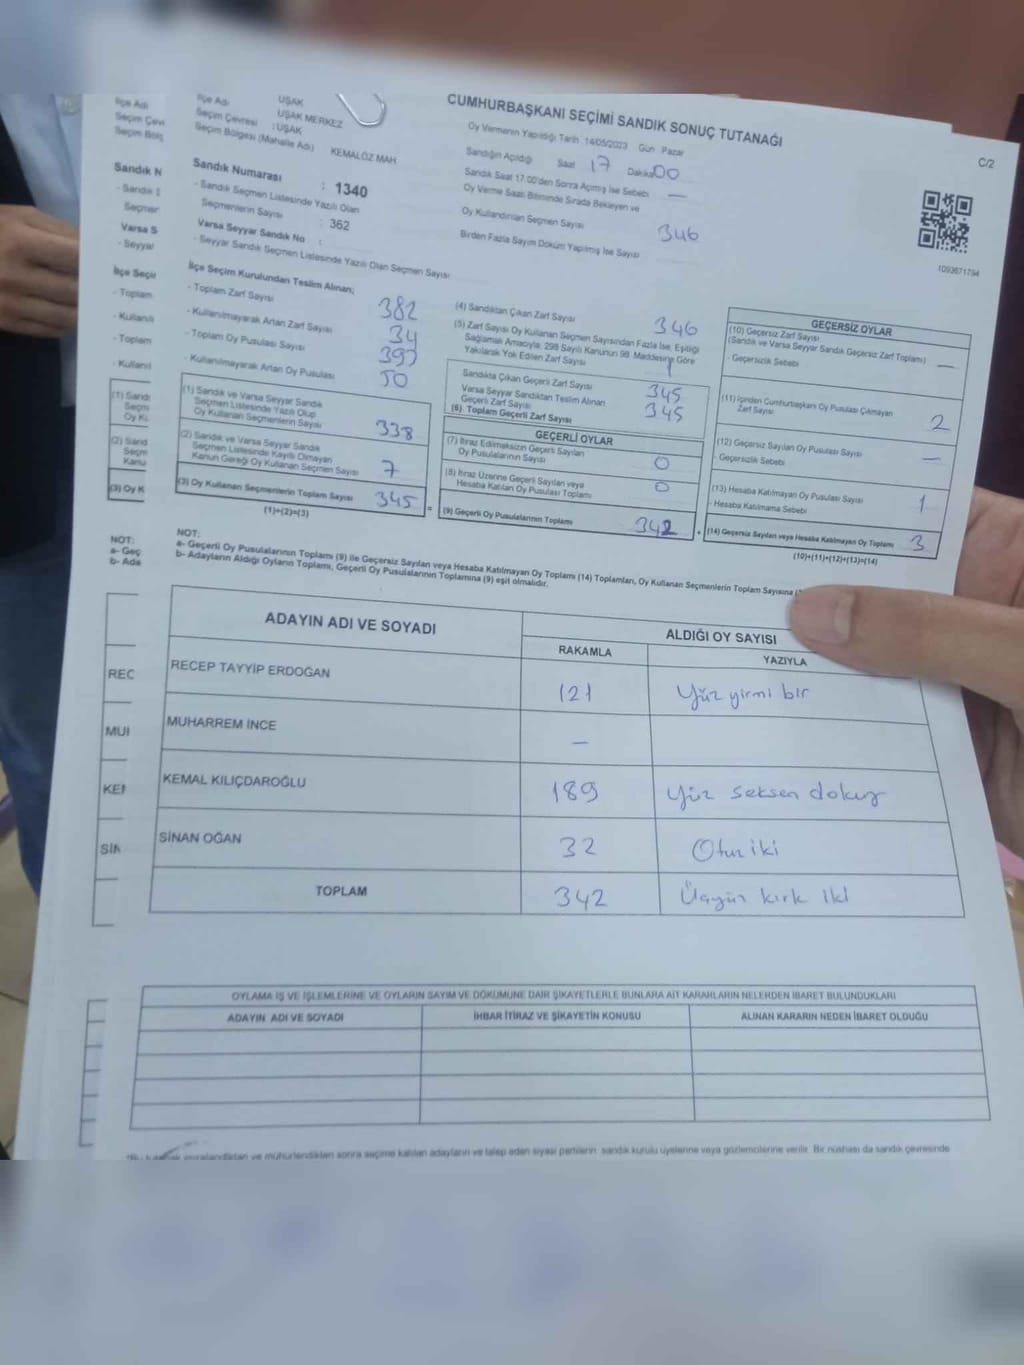 CUMHURBAŞKANI SEÇİMİ SANDIK SONUÇ TUTANAĞI
C/2
İlçe Adı
UŞAK
Seçim Çevresi
UŞAK MERKEZ
: UŞAK
Seçim Bölgesi (Mahalle Adı) KEMALÖZ MAH
Sandık Numarası : 1340
- Sandık Seçmen Listesinde Yazılı Olan
Seçmenlerin Sayısı : 362
Varsa Seyyar Sandık No :
- Seyyar Sandık Seçmen Listesinde Yazılı Olan Seçmen Sayısı
Oy Vermenin Yapıldığı Tarih : 14/05/2023 Gün Pazar
Sandığın Açıldığı Saat 17 Dakika 00
Sandık Saat 17.00'den Sonra Açımış İse Sebebi —
Oy Verme Saati Bitiminde Sırada Bekleyen ve
Oy Kullandırılan Seçmen Sayısı 346
Birden Fazla Sayım Döküm Yapılmış İse Sayısı
1093671794
İlçe Seçim Kurulundan Teslim Alınan;
- Toplam Zarf Sayısı 382
- Kullanılmayarak Artan Zarf Sayısı 34
- Toplam Oy Pusulası Sayısı
- Kullanılmayarak Artan Oy Pusulası 50
(1) Sandık ve Varsa Seyyar Sandık
Seçmen Listesinde Yazılı Olup
Oy Kullanan Seçmenlerin Sayısı 338
(2) Sandık ve Varsa Seyyar Sandık
Seçmen Listesinde Kayıtlı Olmayan
Kanun Gereği Oy Kullanan Seçmen Sayısı 7
(3) Oy Kullanan Seçmenlerin Toplam Sayısı 345
(1)+(2)=(3)
(4) Sandıktan Çıkan Zarf Sayısı 346
(5) Zarf Sayısı Oy Kullanan Seçmen Sayısından Fazla İse, Eşitliği
Sağlamak Amacıyla; 298 Sayılı Kanunun 98. Maddesine Göre
Yakılarak Yok Edilen Zarf Sayısı 1
Sandıkta Çıkan Geçerli Zarf Sayısı 345
Varsa Seyyar Sandıktan Teslim Alınan
Geçerli Zarf Sayısı
(6) Toplam Geçerli Zarf Sayısı 345
GEÇERLİ OYLAR
(7) İtiraz Edilmeksizin Geçerli Sayılan
Oy Pusulalarının Sayısı 0
(8) İtiraz Üzerine Geçerli Sayılan veya
Hesaba Katılan Oy Pusulası Toplamı 0
(9) Geçerli Oy Pusulalarının Toplamı 342
GEÇERSİZ OYLAR
(10) Geçersiz Zarf Sayısı
(Sandık ve Varsa Seyyar Sandık Geçersiz Zarf Toplamı) —
- Geçersizlik Sebebi
(11) İçinden Cumhurbaşkanı Oy Pusulası Çıkmayan
Zarf Sayısı 2
(12) Geçersiz Sayılan Oy Pusulası Sayısı —
- Geçersizlik Sebebi
(13) Hesaba Katılmayan Oy Pusulası Sayısı 1
- Hesaba Katılmama Sebebi
(14) Geçersiz Sayılan veya Hesaba Katılmayan Oy Toplamı 3
(10)+(11)+(12)+(13)=(14)
NOT:
a- Geçerli Oy Pusulalarının Toplamı (9) ile Geçersiz Sayılan veya Hesaba Katılmayan Oy Toplamı (14) Toplamları, Oy Kullanan Seçmenlerin Toplam Sayısına
b- Adayların Aldığı Oyların Toplamı, Geçerli Oy Pusulalarının Toplamına (9) eşit olmalıdır.
ADAYIN ADI VE SOYADI
ALDIĞI OY SAYISI
RAKAMLA YAZIYLA
RECEP TAYYİP ERDOĞAN 121 Yüz yirmi bir
MUHARREM İNCE —
KEMAL KILIÇDAROĞLU 189 Yüz seksen dokuz
SİNAN OĞAN 32 Otuz iki
TOPLAM 342 Üçyüz kırk iki
OYLAMA İŞ VE İŞLEMLERİNE VE OYLARIN SAYIM VE DÖKÜMÜNE DAİR ŞİKAYETLERLE BUNLARA AİT KARARLARIN NELERDEN İBARET BULUNDUKLARI
ADAYIN ADI VE SOYADI İHBAR İTİRAZ VE ŞİKAYETİN KONUSU ALINAN KARARIN NEDEN İBARET OLDUĞU
imzalandıktan ve mühürlendikten sonra seçime katılan adayların ve talep eden siyasi partilerin sandık kurulu üyelerine veya gözlemcilerine verilir. Bir nüshası da sandık çevresinde